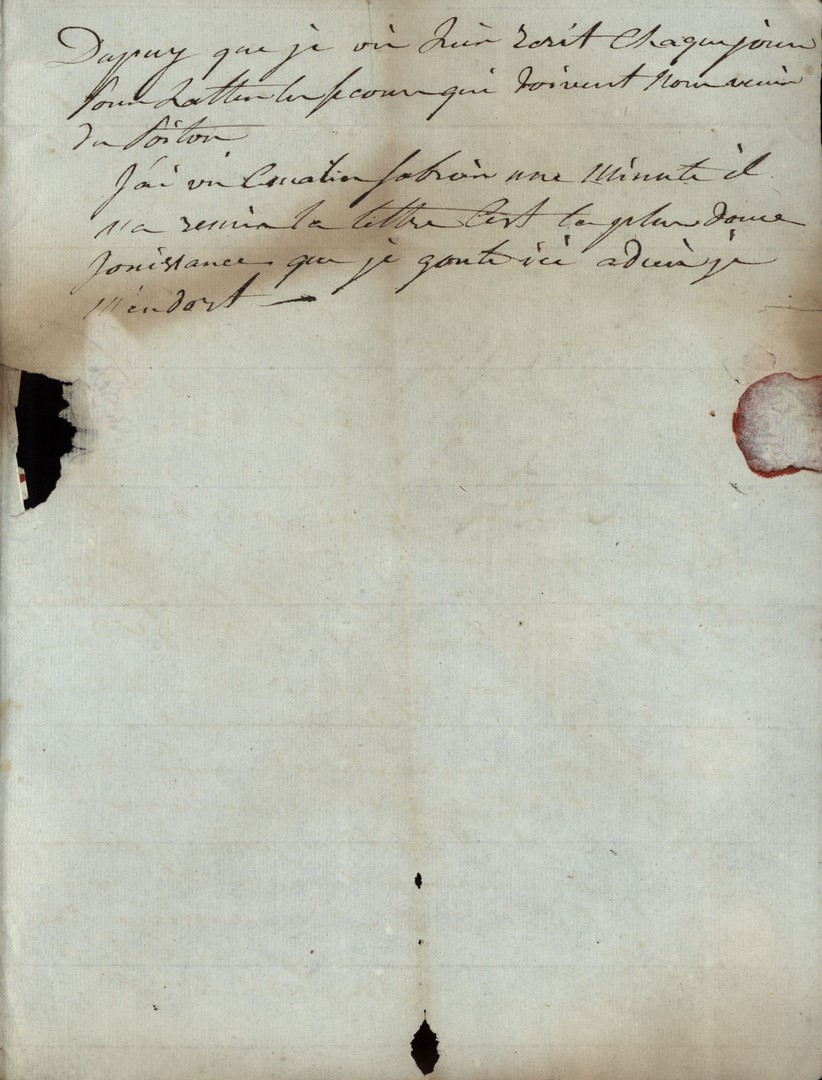 Dupuy que je vis hier ecrit chaque jour
pour hatter les secours qui doivent nous venir
du Poitou
J'ai vu Ce matin Sabron une minute il
m'a remis ta lettre C'est la plus douce
Jouissance que je goute ici adieu je
m'endort